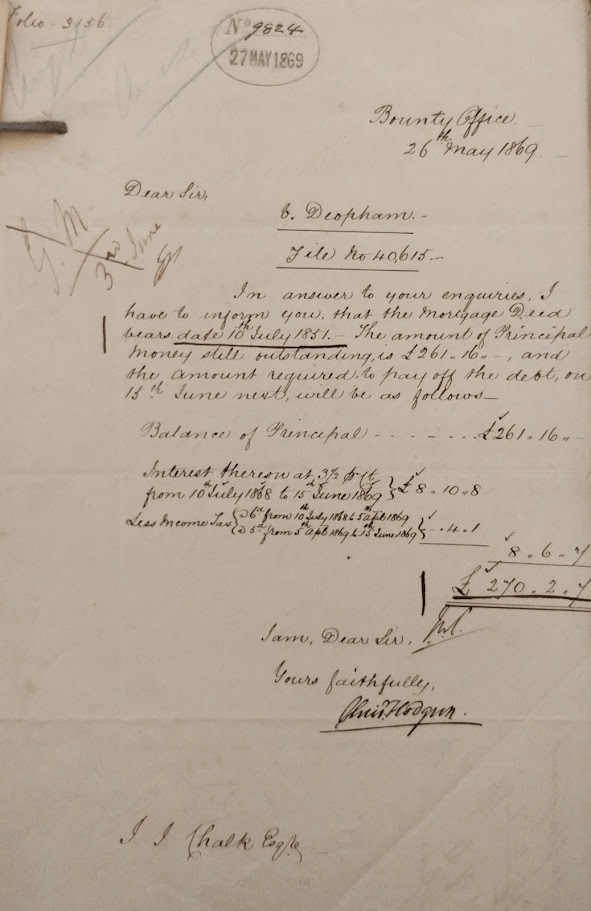 Folio - 3156.
No 9824
27 MAY 1869
Bounty Office.
26th May 1869.
Dear Sir,
G. M.
3rd June
C. Deopham.-
File No 40,615-
In answer to your enquiries, I
have to inform you, that the Mortgage Deed
bears date 10th July 1851.- The amount of Principal
Money still outstanding, is £261 " 16 " -, and
the amount required, to pay off the debt, on
15th June next, will be as follows-
Balance of Principal - - - . - - . . £261 " 16 " -
Interest thereon at 3½ p Ct
from 10th July 1868 to 15th June 1869 } £8 " 10 " 8
Less Income Tax { @ 6d from 10th July 1868 to 5th Apl 1869
@ 5d from 5th Apl 1869 to 15th June 1869 } " 4 " 1
8 " 6 " 7
£ 270 " 2 " 7
I am, Dear Sir,
Yours faithfully,
Chris. Hodgson.
J. J. Chalk Esqre